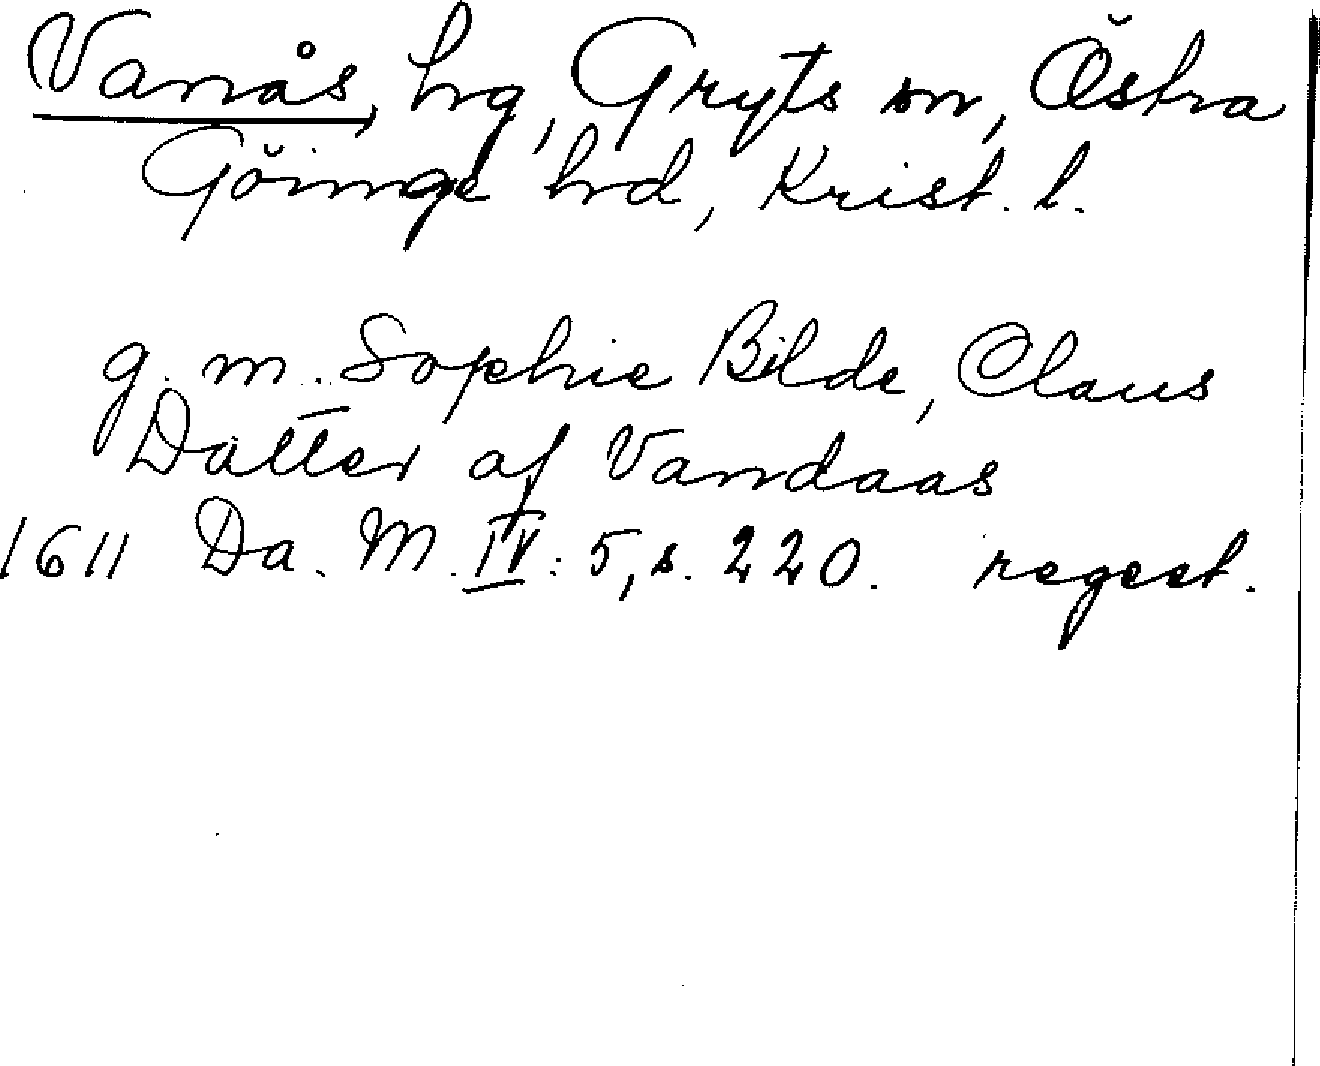 Vanås, hrg, Gryts sn, Östra
Göinge hrd, Krist. l.
g. m. Sophie Bilde, Claus
Datter af Vandaas
1611 Da. M. IV: 5, s. 220. regest.